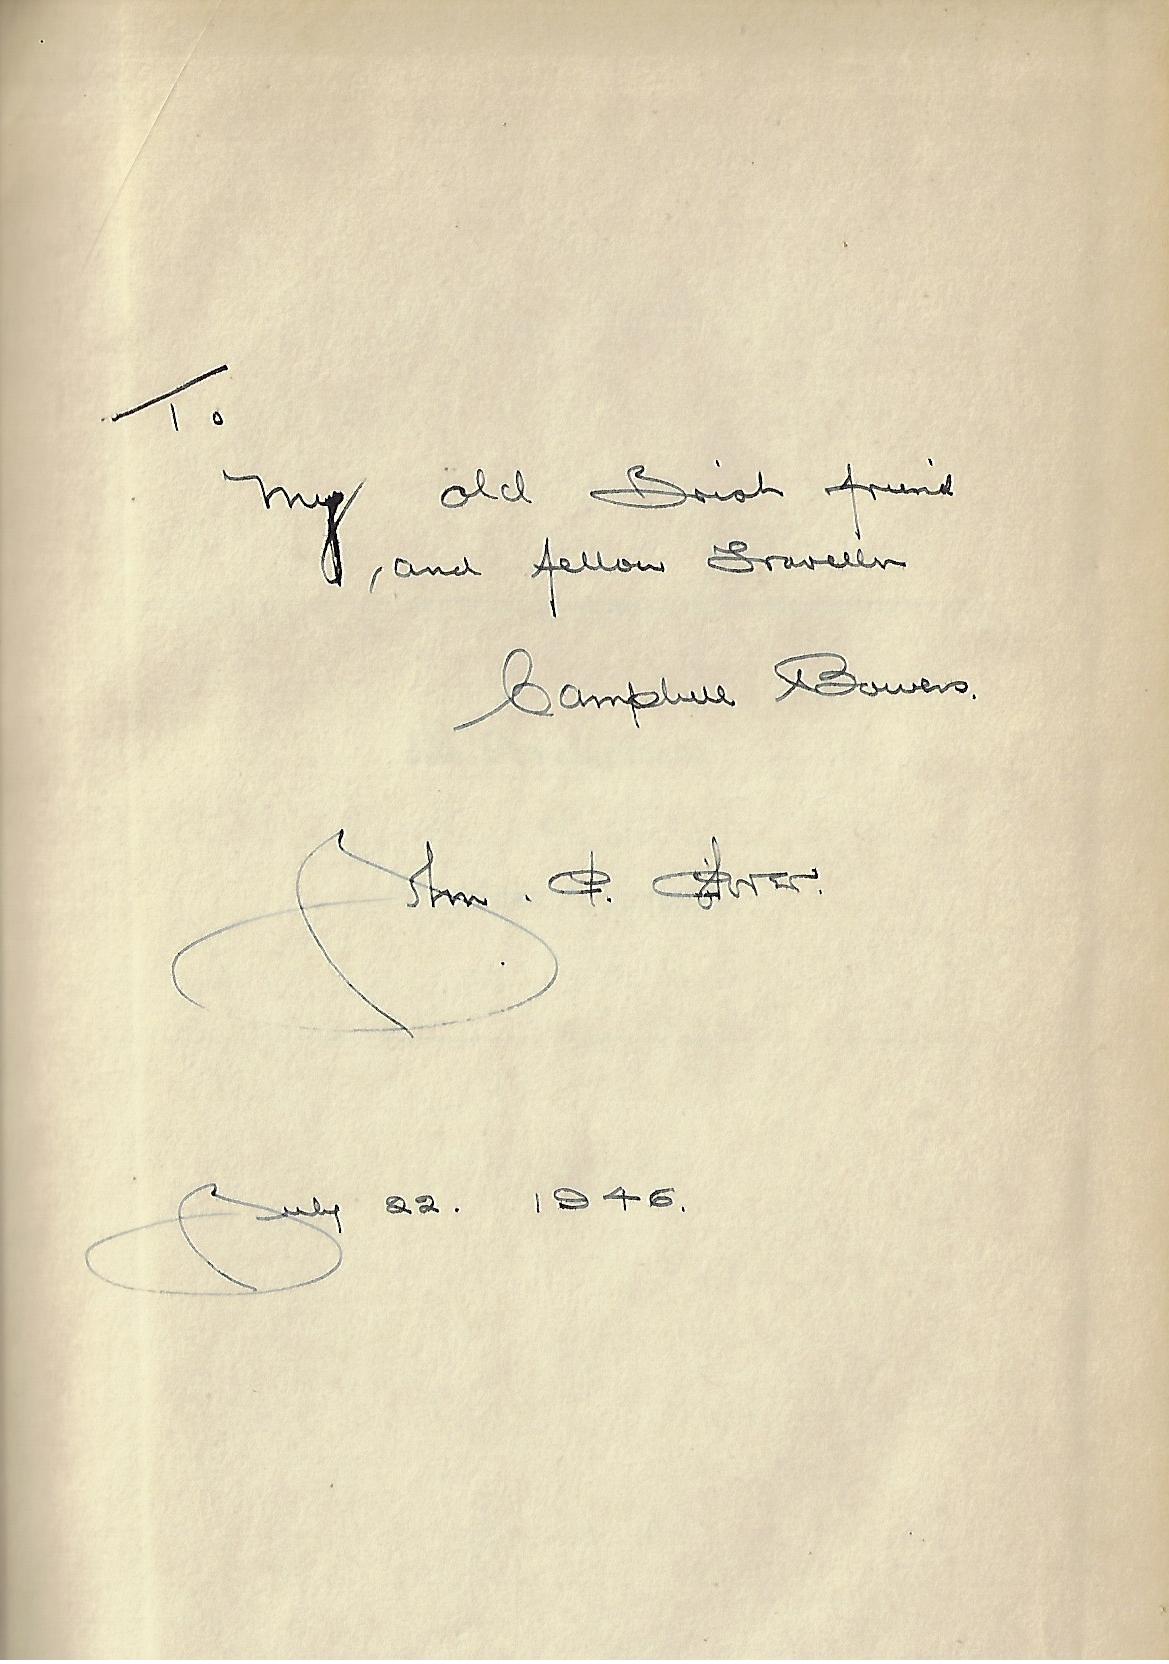 To
My old Irish friend
, and fellow Traveller
Campbell Bowers.
John
July 22. 1946.